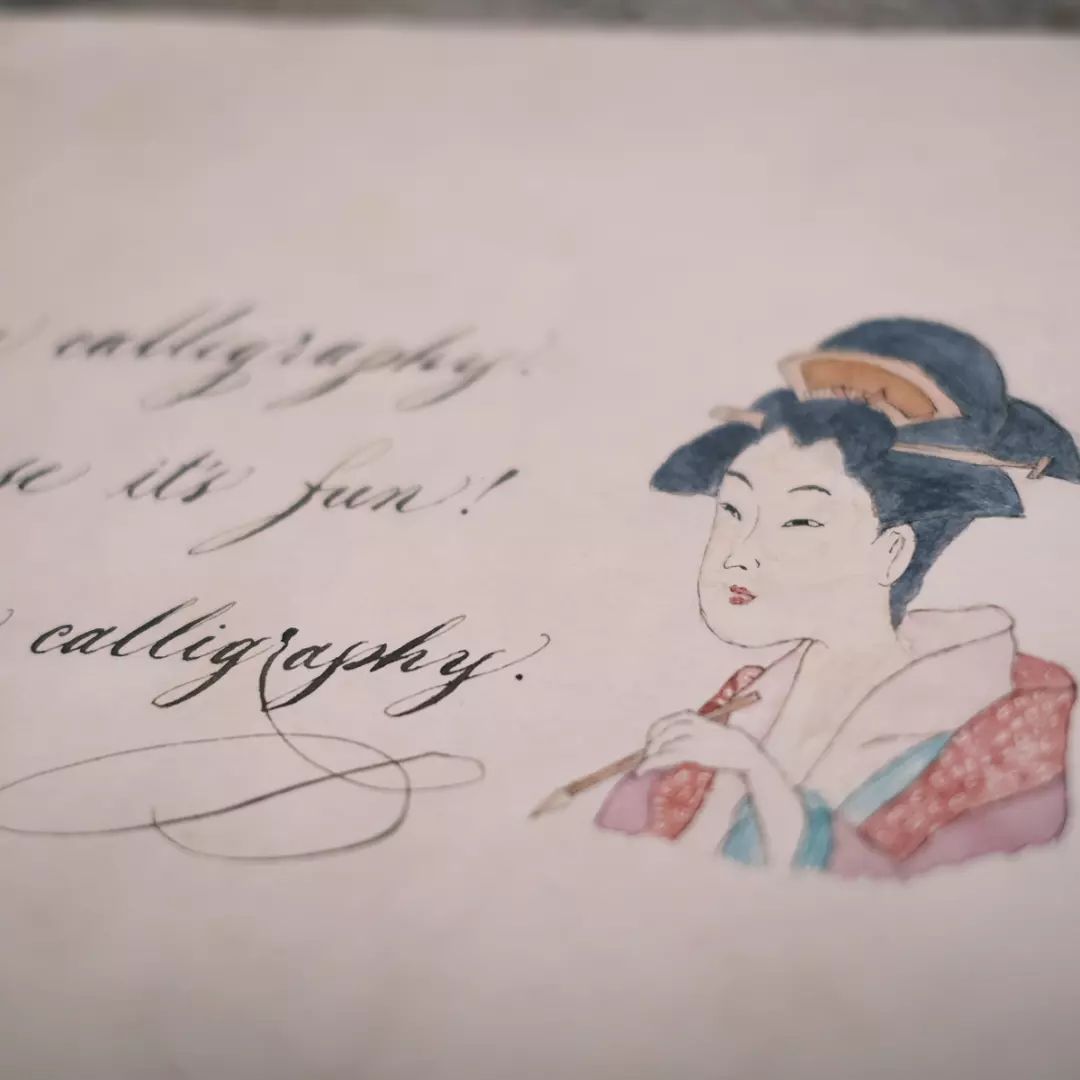 calligraphy
it's fun!
calligraphy.